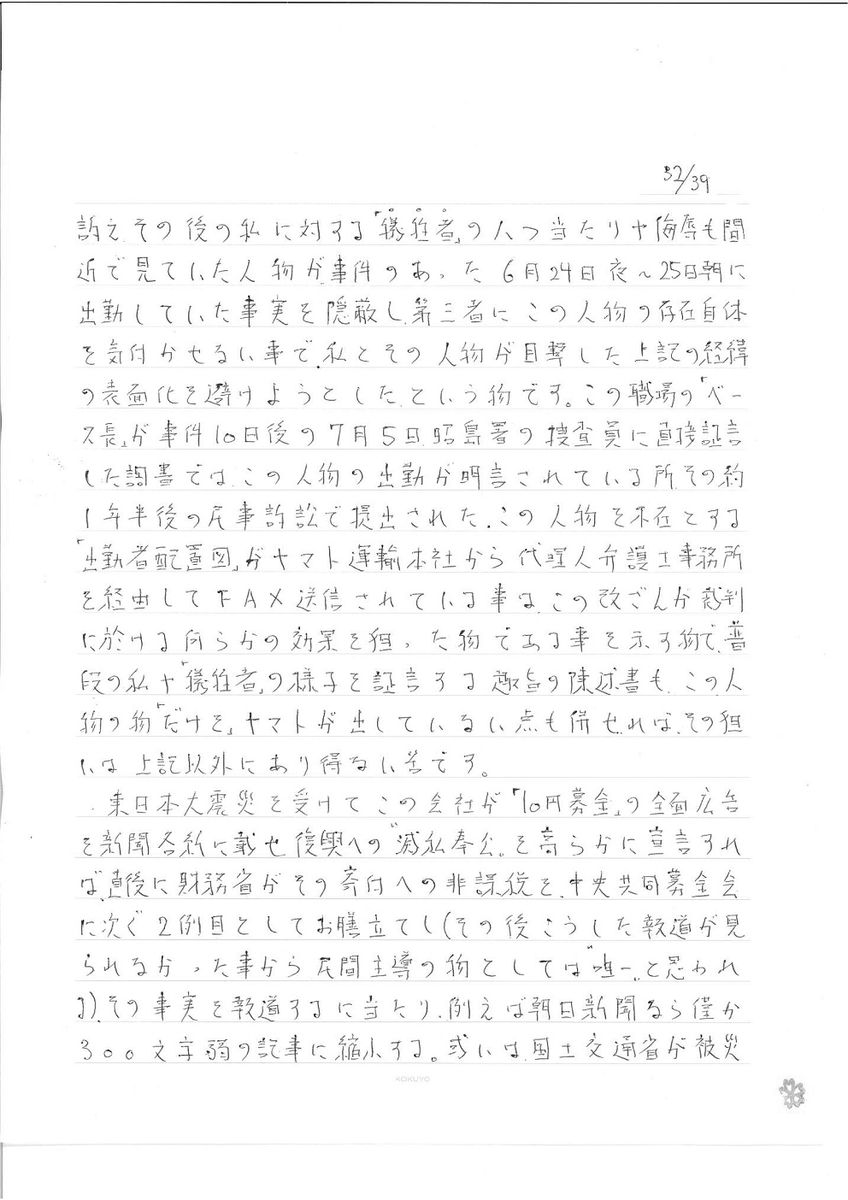 32/39
訴え、その後の私に対する「犠牲者」の八つ当たりや侮辱も間
近で見ていた人物が事件のあった6月24日夜~25日朝に
出勤していた事実を隠蔽し、第三者にこの人物の存在自体
を気付かせない事で、私とその人物が目撃した上記の経緯
の表面化を避けようとした、という物です。この職場の「ベー
ス長」が事件10日後の7月5日、昭島署の捜査員に直接証言
した調書ではこの人物の出勤が明言されている所、その約
1年半後の民事訴訟で提出された、この人物を不在とする
「出勤者配置図」がヤマト運輸本社から代理人弁護士事務所
を経由してFAX送信されている事は、この改ざんが裁判
に於ける何らかの効果を狙った物である事を示す物で、普
段の私や「犠牲者」の様子を証言する趣旨の陳述書も、この人
物の物"だけを"ヤマトが出していない点も併せれば、その狙
いは上記以外にあり得ない筈です。
東日本大震災を受けてこの会社が「10円募金」の全面広告
を新聞各紙に載せ復興への"滅私奉公"を高らかに宣言すれ
ば、直後に財務省がその寄付への非課税を、中央共同募金会
に次ぐ2例目としてお膳立てし(その後こうした報道が見
られなかった事から民間主導の物としては"唯一"と思われ
る)、その事実を報道するに当たり、例えば朝日新聞なら僅か
300文字弱の記事に縮小する。或いは、国土交通省が被災
KOKUYO